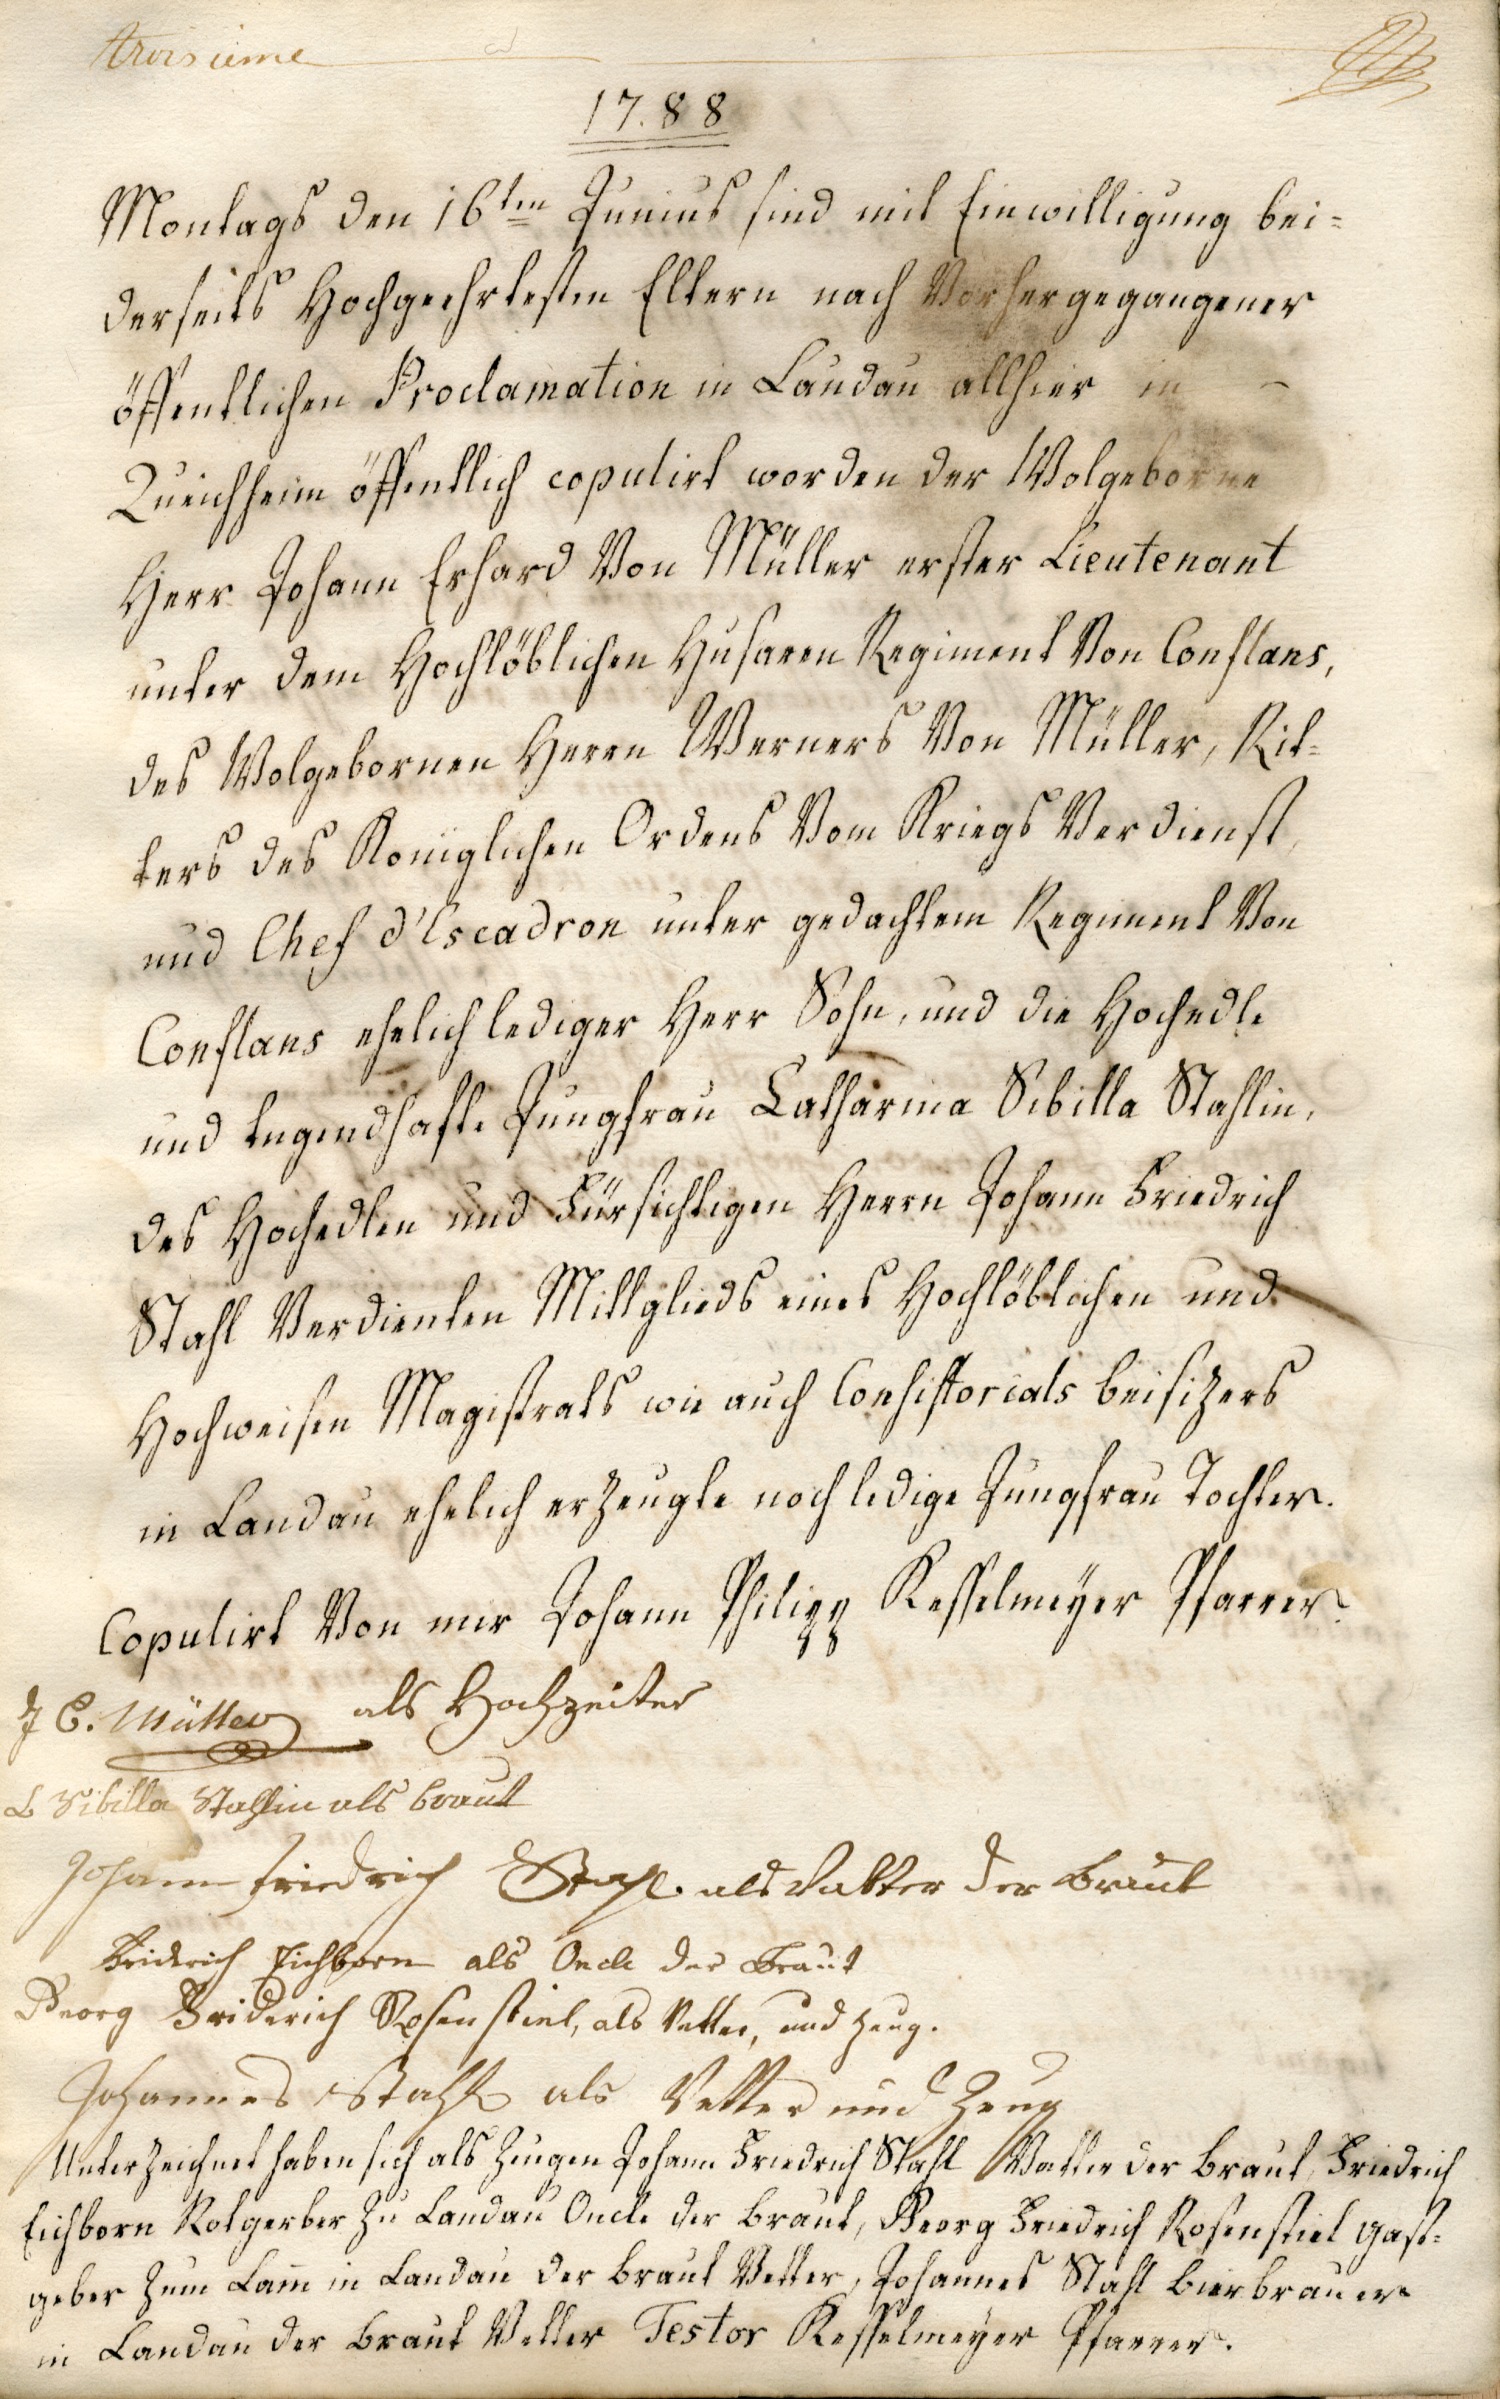 troisieme
1788
Montags den 16ten Junius sind mit Einwilligung bei=
derseits Hochgeehrtesten Eltern nach Vorhergegangener
öffentlichen Proclamation in Landau allhier in
Queichheim öffentlich copulirt worden der Wolgeborne
Herr Johann Erhard Von Müller erster Lieutenant
unter dem Hochlöblichen Husaren Regiment Von Conflans,
des Wolgebornen Herrn Werners Von Müller, Rit=
ters des Königlichen Ordens Vom Kriegs Verdienst,
und Chef d'Escadron unter gedachtem Regiment Von
Conflans ehelich lediger Herr Sohn, und die Hochedle
und tugendhafte Jungfrau Catharina Sibilla Stahlin,
des Hochedlen und Fürsichtigen Herrn Johann Friedrich
Stahl Verdienten Mittglieds eines Hochlöblichen und
Hochweisen Magistrats wie auch Consistorials beisizers
in Landau ehelich erzeugte noch ledige Jungfrau Tochter.
Copulirt Von mir Johann Philipp Kesselmeyer Pfarrer.
J E. Müller als Hochzeiter
C Sibilla Stahlin als braut
Johann Friedrich Stahl als Vatter der braut
Friderich Eichborn als Oncle der Braut
Georg Friderich Rosenstiel, als Vetter, und Zeug.
Johannes Stahl als Vetter und Zeug
Unterzeichnet haben sich als Zeugen Johann Friedrich Stahl Vatter der braut, Friedrich
Eichborn Rotgerber zu Landau Oncle der braut, Georg Friedrich Rosenstiel gast=
geber zum Lam̄ in Landau der braut Vetter, Johannes Stahl bierbrauer
in Landau der braut Vetter Testor Kesselmeyer Pfarrer.